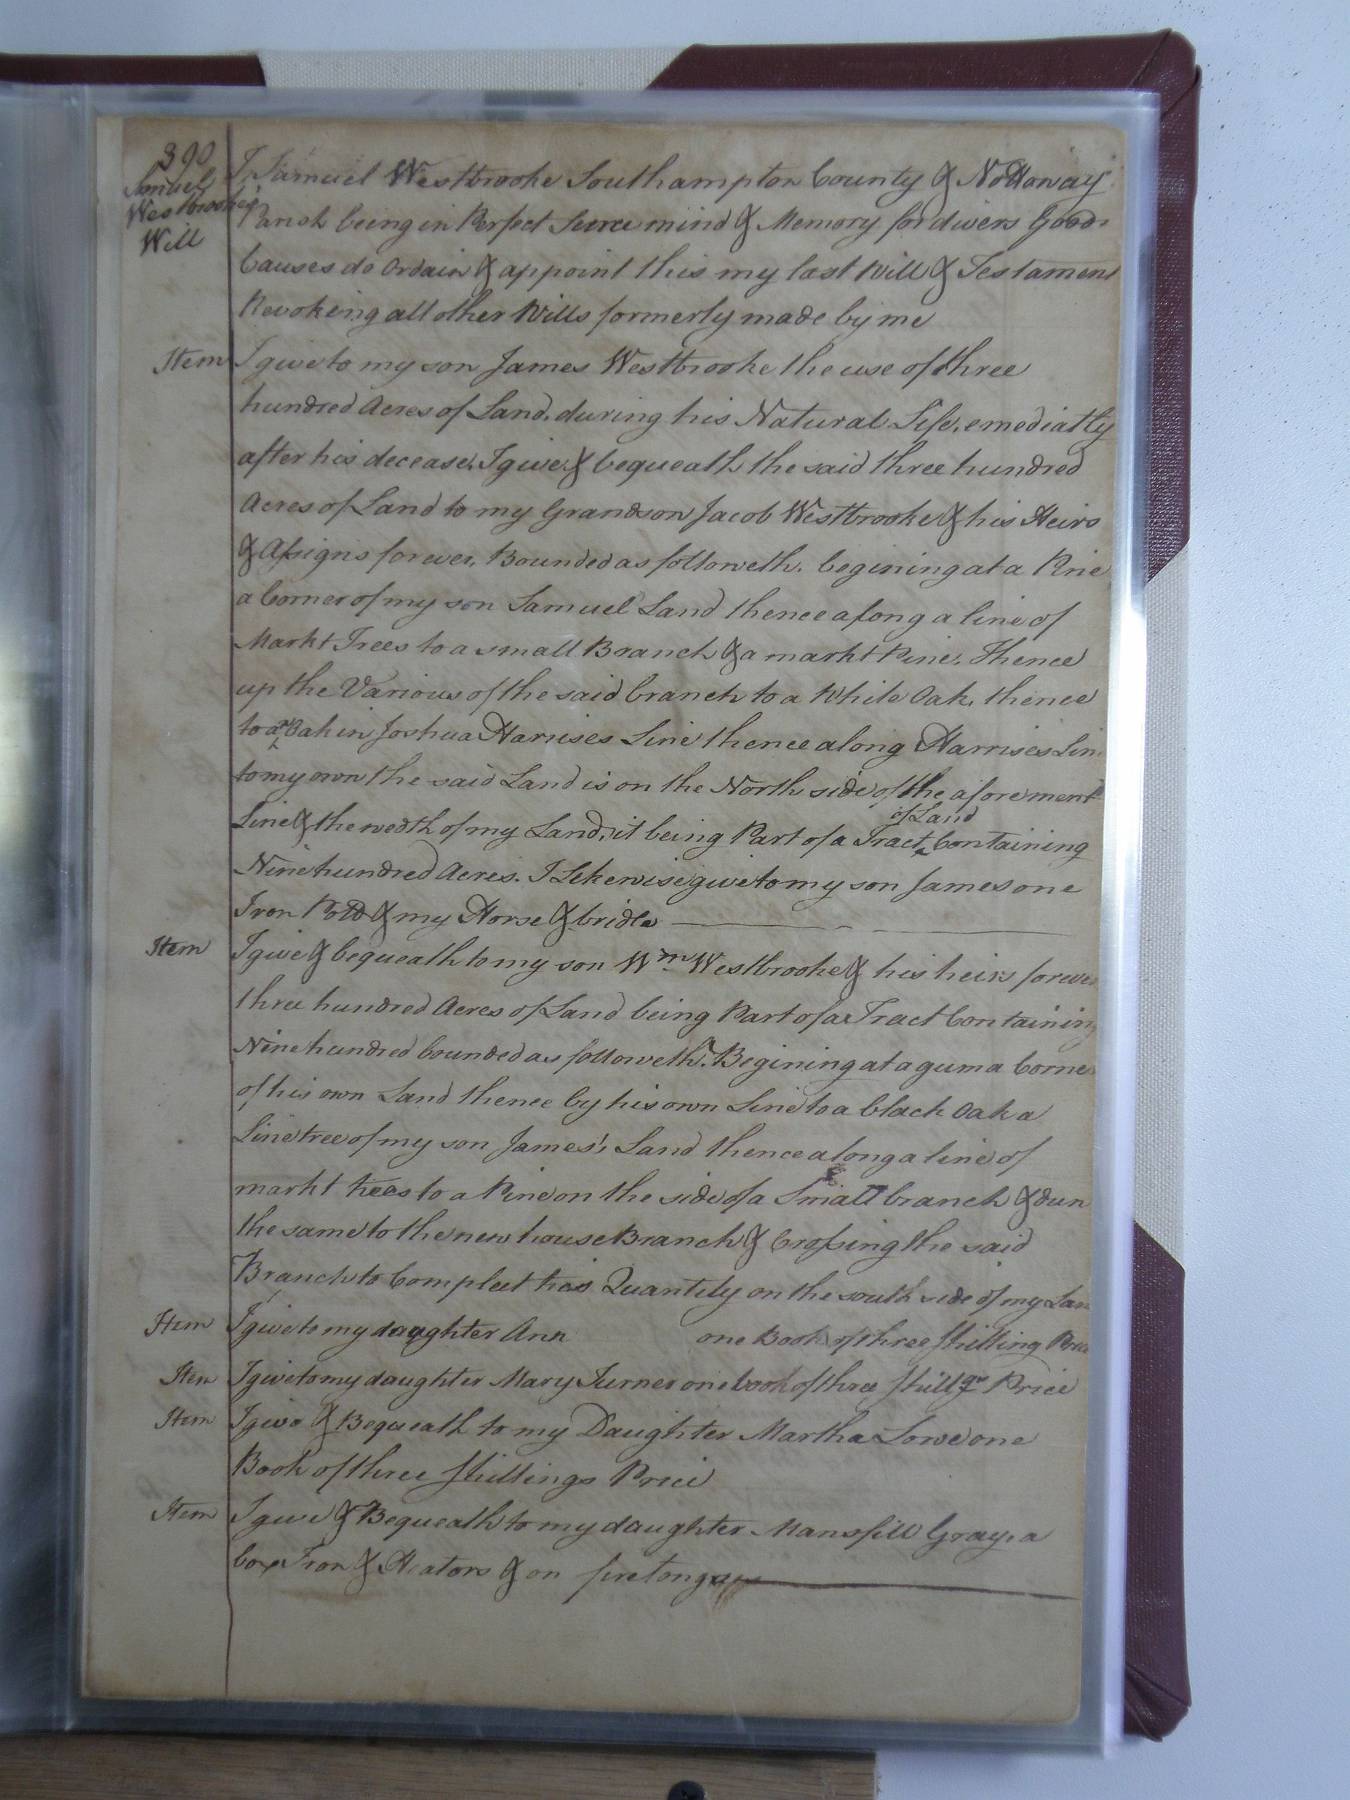 390
Samuel
Westbrooke's
Will
I, Samuel Westbrooke Southampton County & Nottoway
Parish being in Perfect mind & Memory for divers Good
Causes do Ordain & appoint this my last Will & Testament
Revoking all other Wills formerly made by me
Item I give to my son James Westbrooke the use of three
hundred Acres of Land, during his Natural Life, emediatly
after his decease, I give & bequeath the said three hundred
Acres of Land to my Grandson Jacob Westbrooke & his Heirs
& Assigns forever, Bounded as followeth, begining at a Pine
a Corner of my son Samuel Land thence along a line of
Markt Trees to a small Branch & a markt Pine, Thence
up the Various of the said branch to a White Oak, thence
to a Oak in Joshua Harrises Line thence along Harrises Lin
to my own the said Land is on the North side of the aforement
Line & the wedth of my Land, it being Part of a Tract of Land Containing
Nine hundred Acres. I Lekewise give to my son James one
Iron Pott & my Horse & bridle
Item I give & bequeath to my son Wm Westbrooke & his heirs forever
three hundred Acres of Land being Part of a Tract Containing
Nine hundred bounded as followeth. Begining at a gum a Corner
of his own Land thence by his own Line to a black Oak a
Line tree of my son James's Land thence along a line of
markt trees to a Pine on the side of a Small branch & dun
the same to the new house Branch & Crossing the said
Branch to Compleet his Quantity on the south side of my Lan
Item I give to my daughter Ann one Book of three Shilling Price
Item I give to my daughter Mary Turner one book of three Shillgs Price
Item I give & Bequeath to my Daughter Martha Lowe one
Book of three Shillings Price
Item I give & Bequeath to my daughter Mansfill Gray, a
box Iron & Heators & on fire tongs